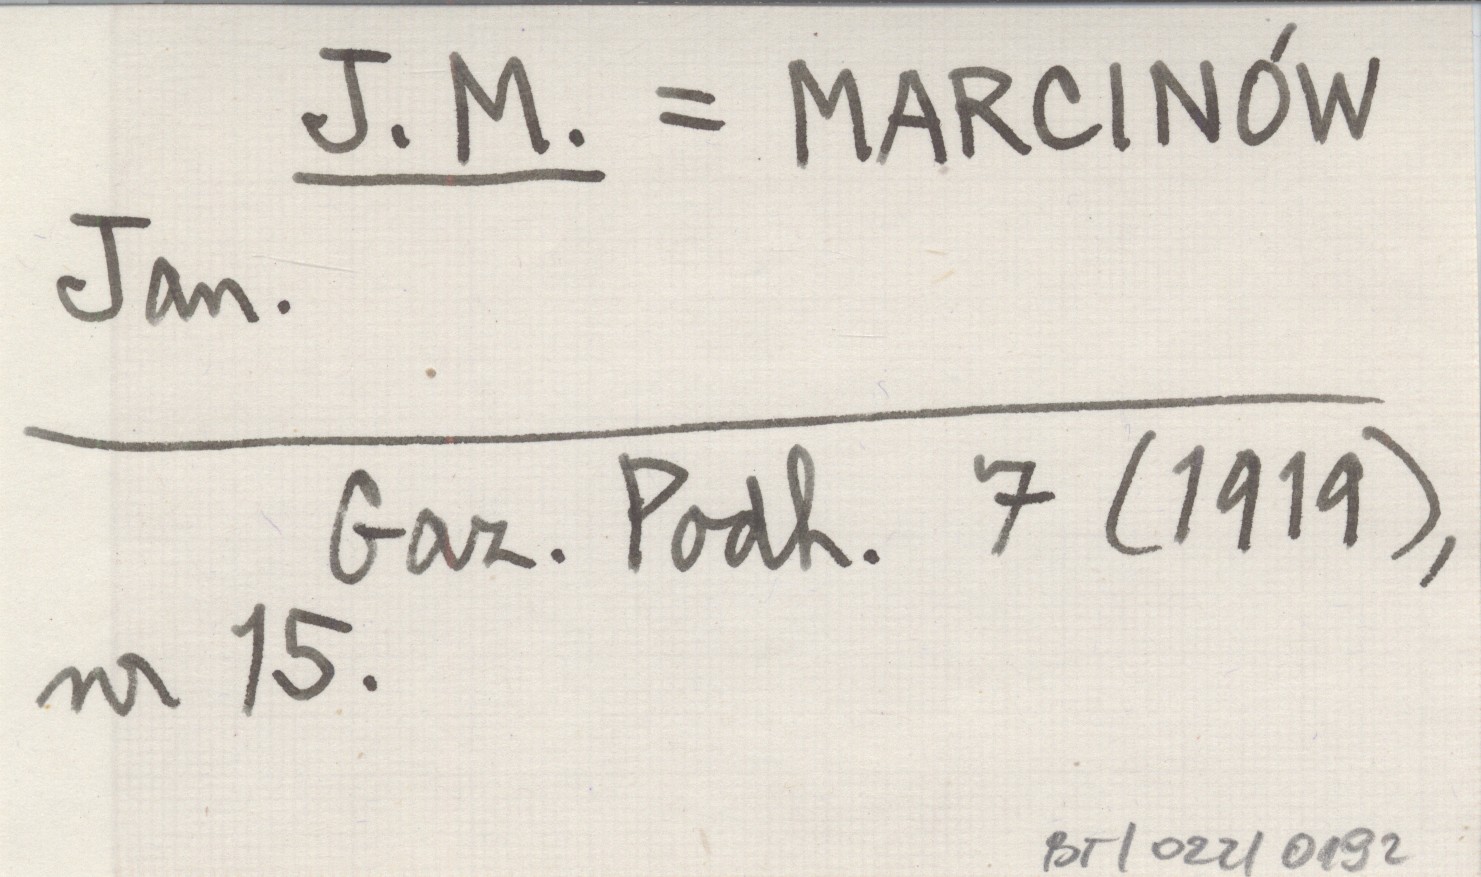 J.M. = MARCINÓW
Jan.
Gaz. Podh. 7 (1919),
nr 15.
BT/022/0192